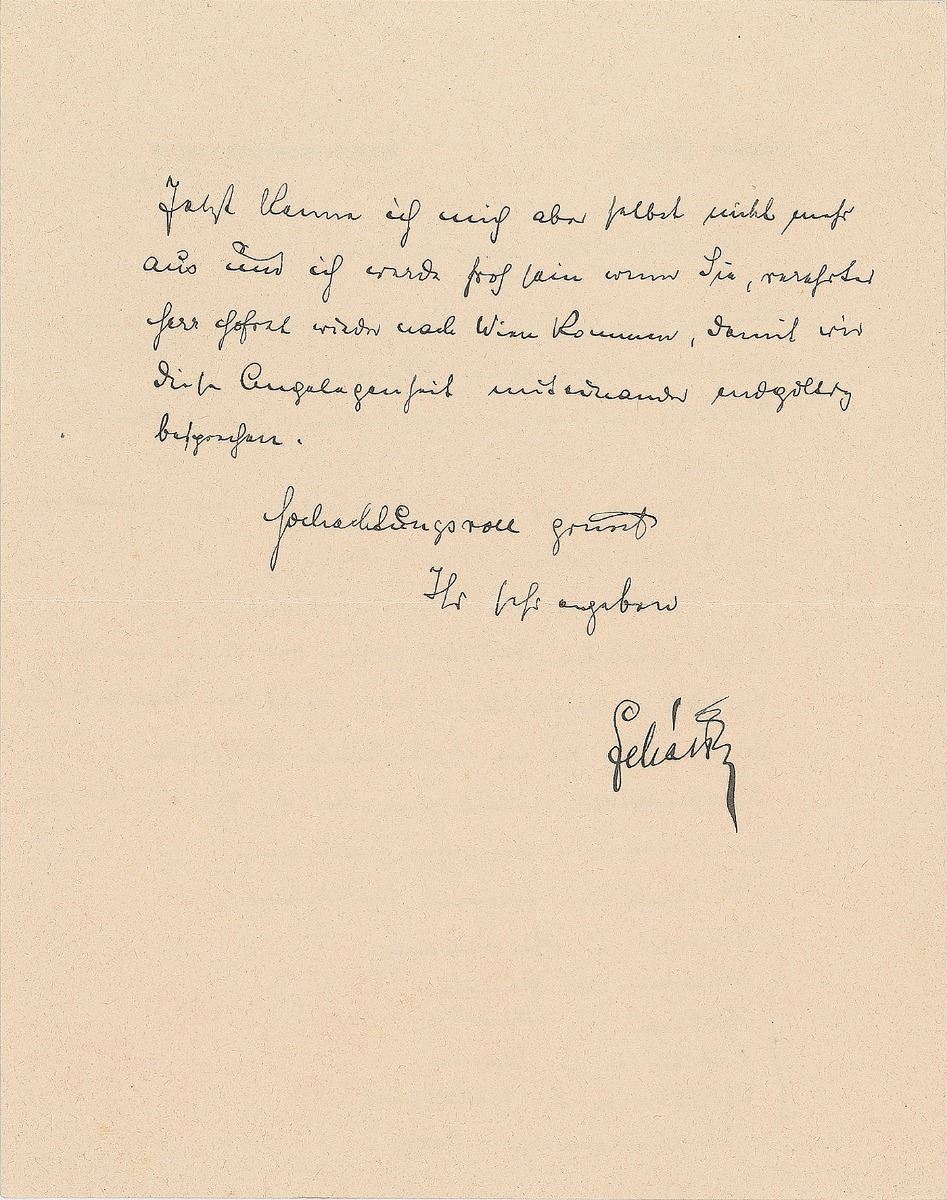 Jetzt kenne ich mich aber selbst nicht mehr
aus und ich werde froh sein wenn Sie, verehrter
Herr Hofrat wieder nach Wien kommen, damit wir
diese Angelegenheit miteinander endgültig
besprechen.
Hochachtungsvoll grüsst
Ihr sehr ergebener
Lehár